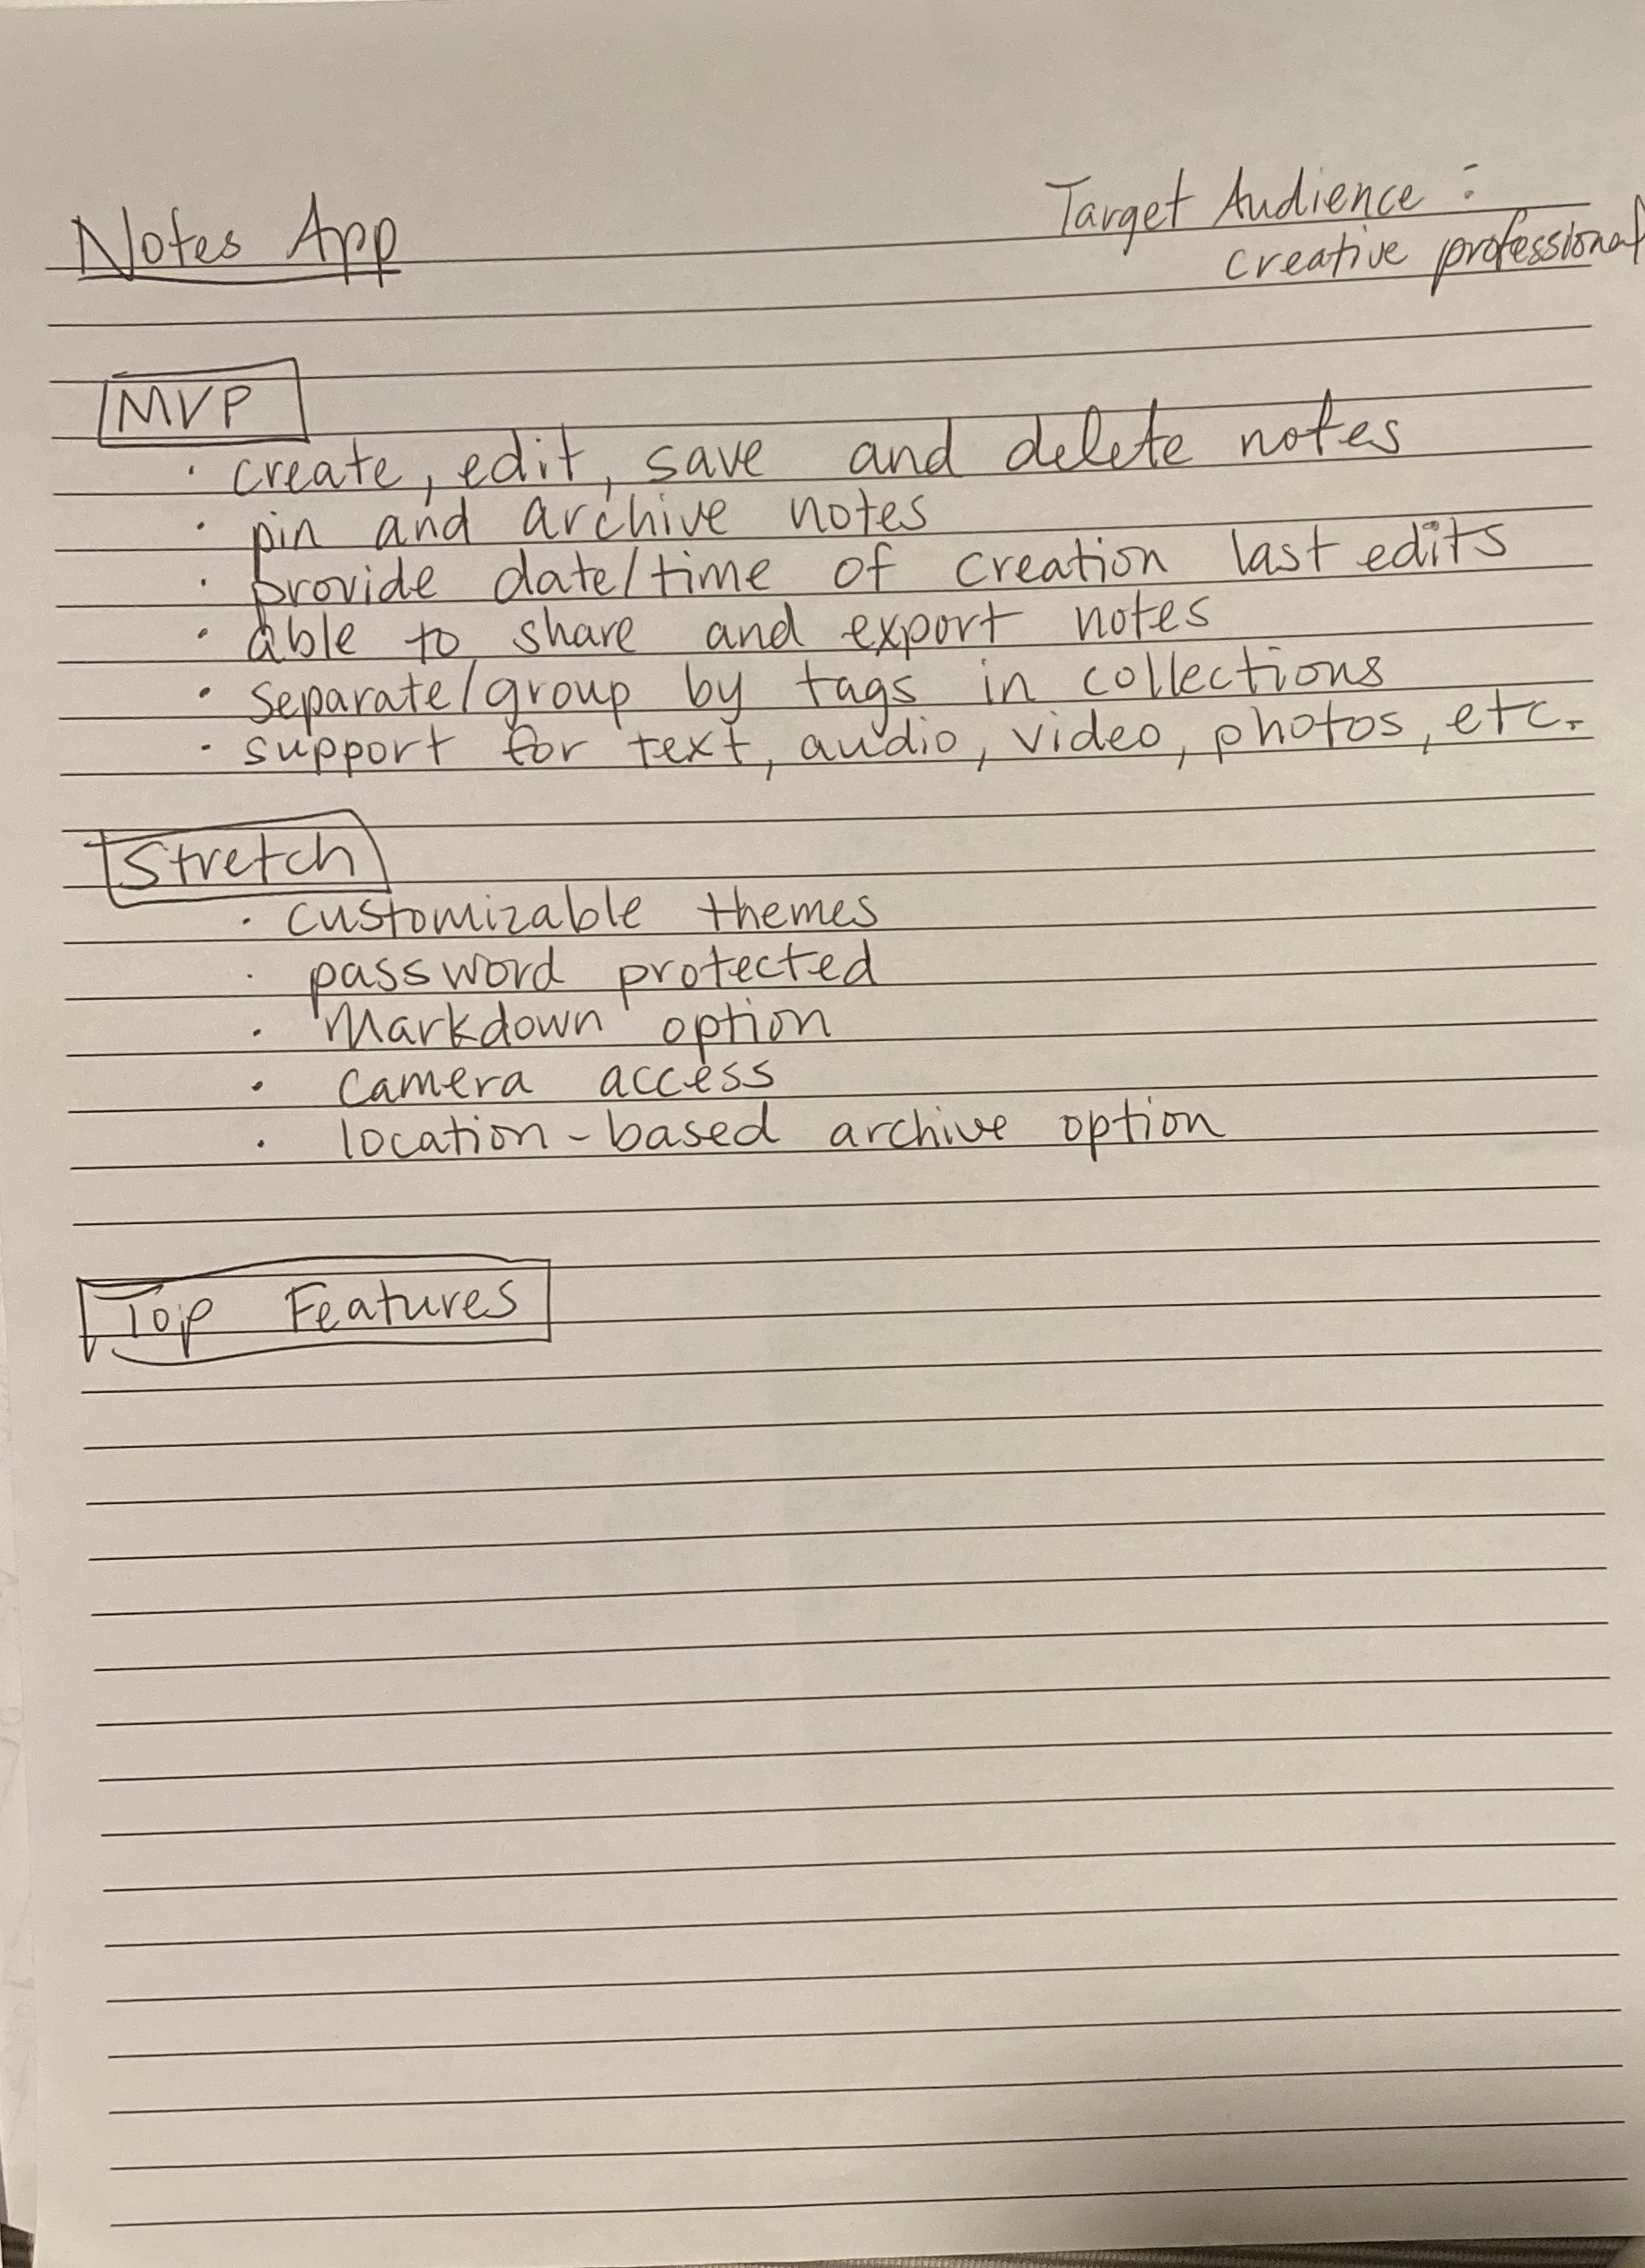 Notes App
Target Audience :
creative professional
MVP
· create, edit, save and delete notes
· pin and archive notes
· provide date/time of creation last edits
· able to share and export notes
· separate/group by tags in collections
· support for text, audio, video, photos, etc.
Stretch
· customizable themes
· password protected
· Markdown option
· camera access
· location-based archive option
Top Features